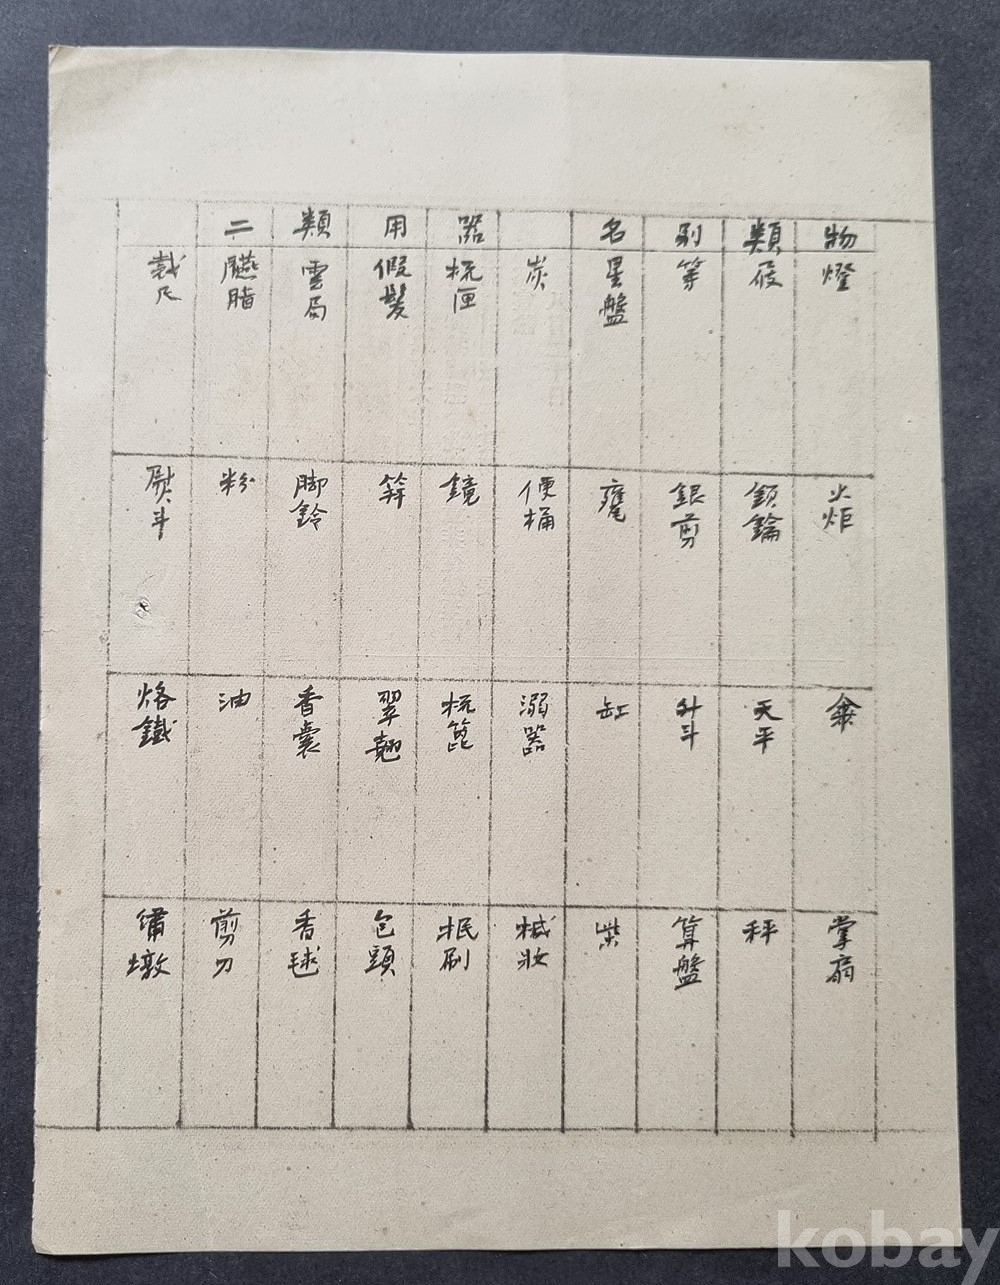 物 類 別 名 器 用 類 二
燈 屐 等 星盤 炭 梳匣 假髮 雲肩 臙脂 裁尺
火炬 鎖鑰 銀剪 甕 便桶 鏡 笄 脚鈴 粉 熨斗
傘 天平 升斗 缸 溺器 梳篦 翠翹 香囊 油 烙鐵
掌扇 秤 算盤 柴 椷妝 抿刷 包頭 香毬 剪刀 繡墩
kobay